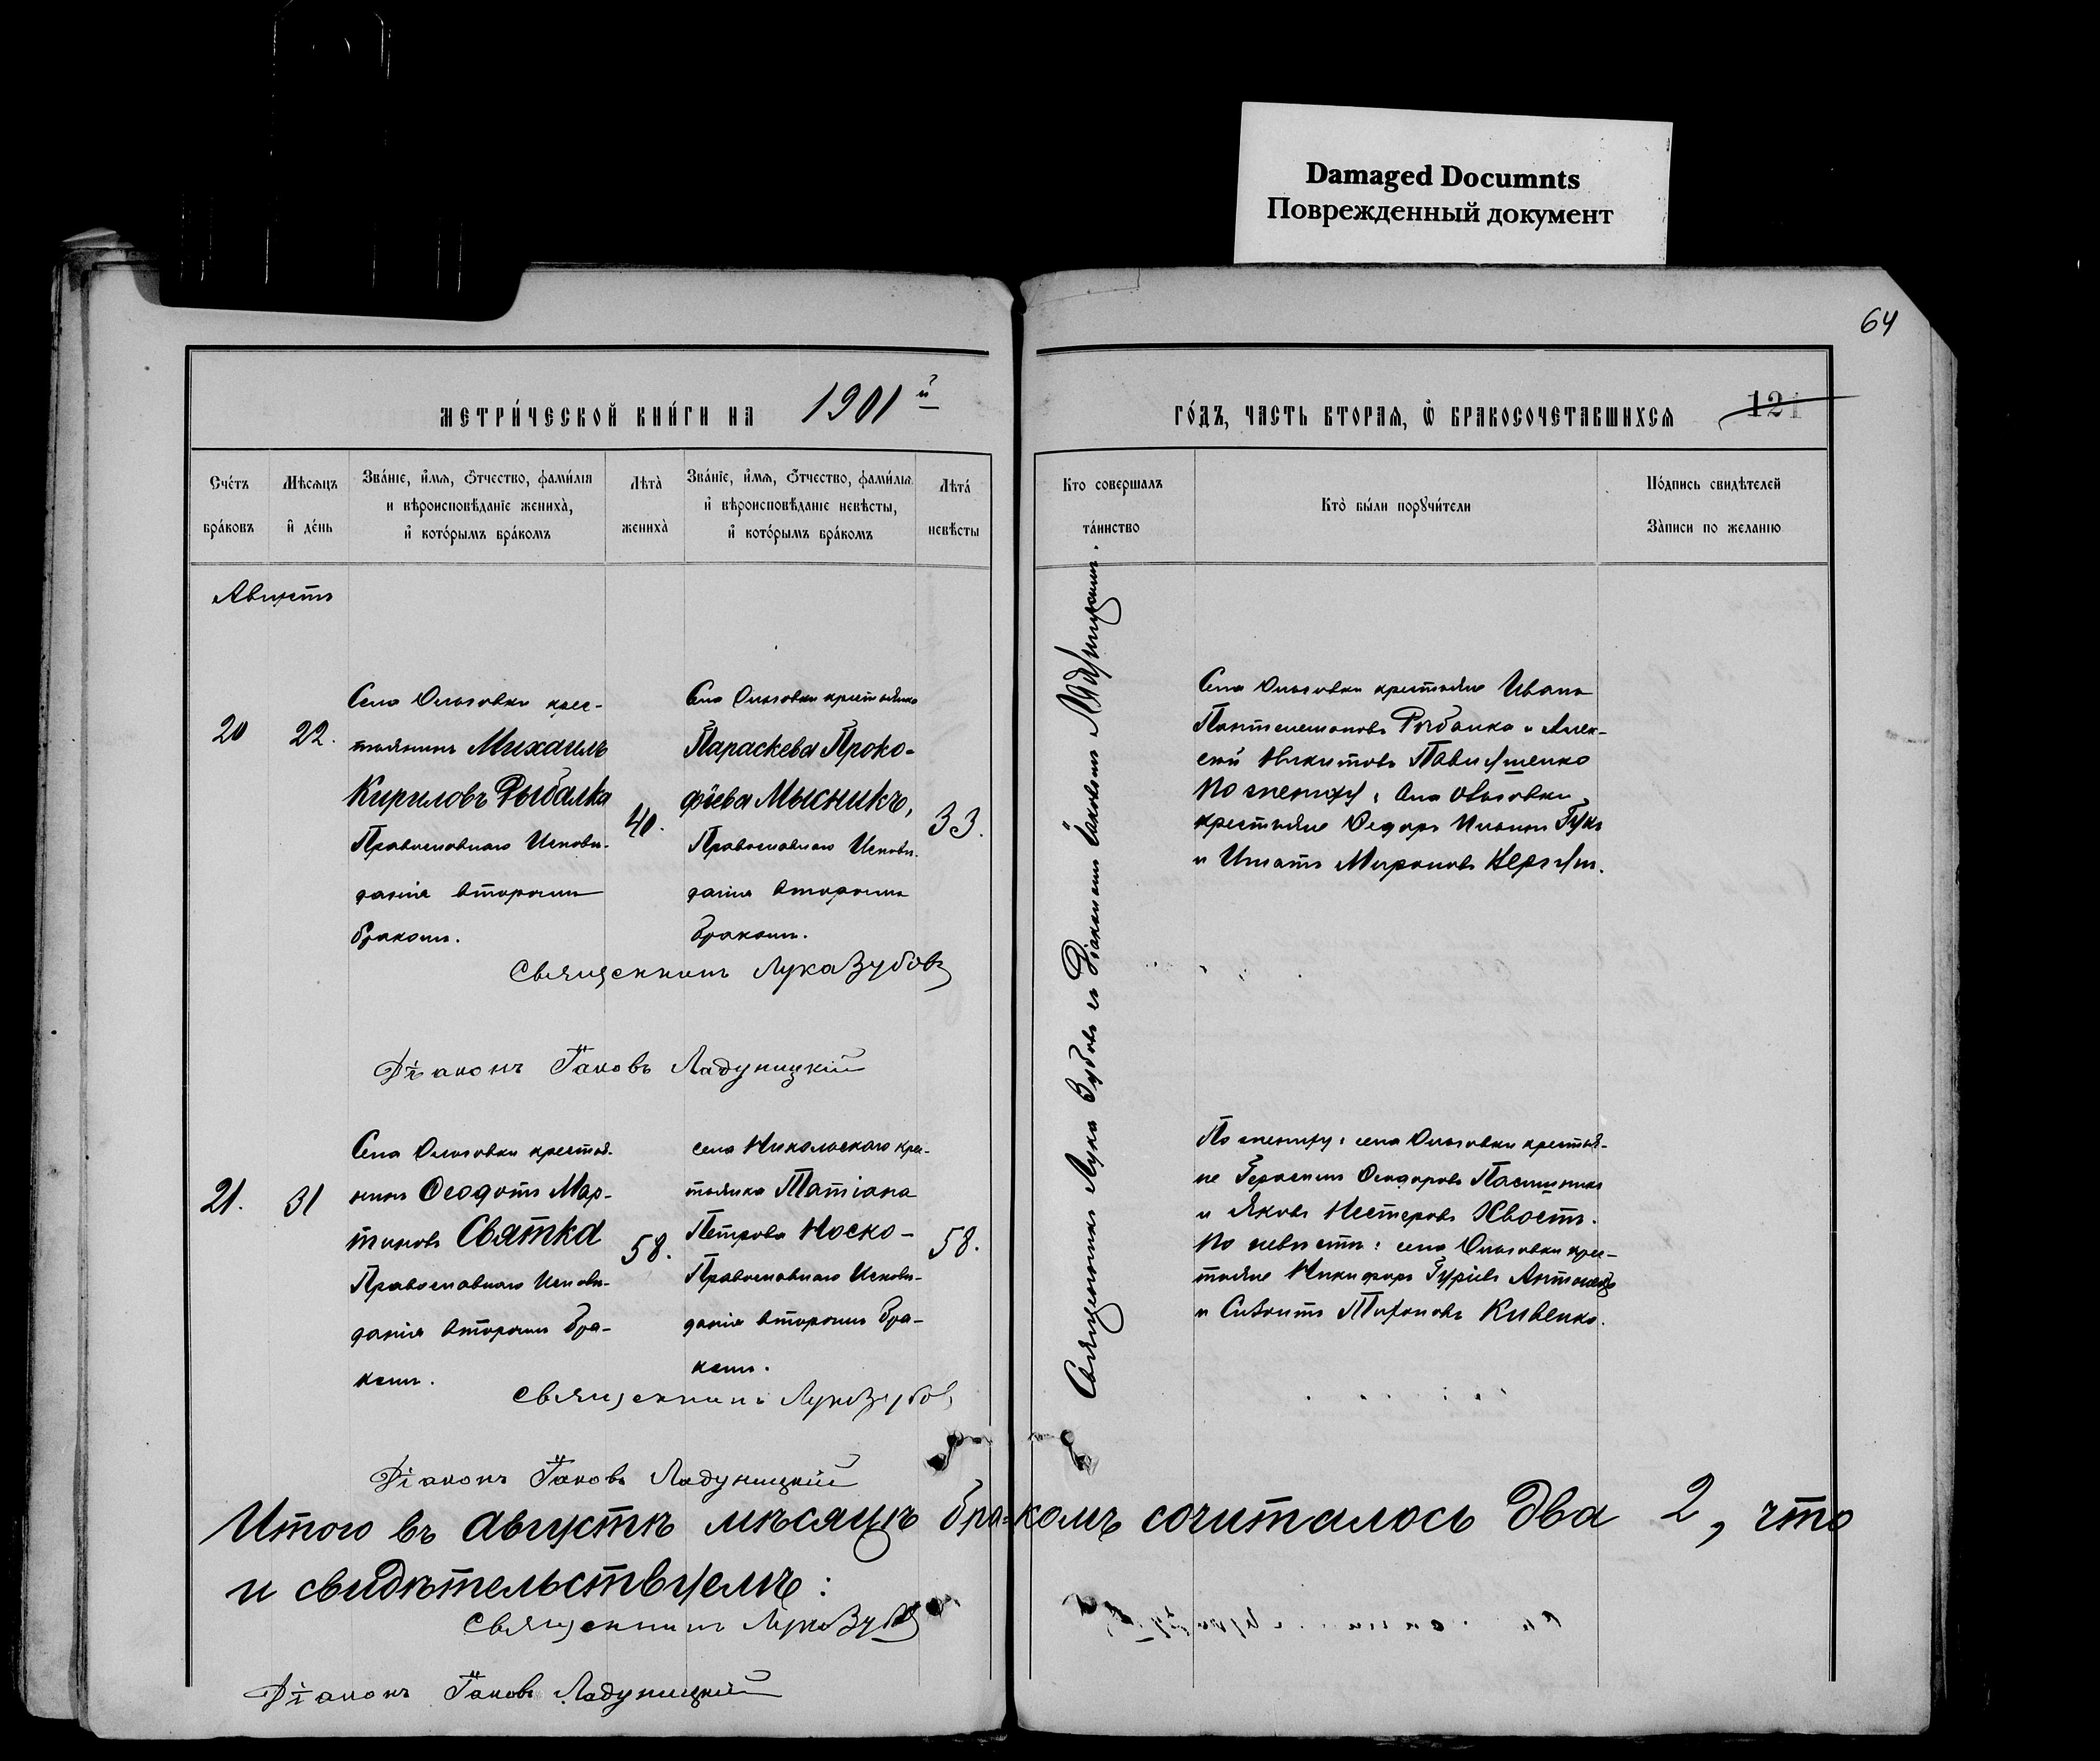 Damaged Documnts
Поврежденный документ
64
МЕТРИ́ЧЕСКОЙ КНИ́ГИ НА 1901й
ГО́ДЪ, ЧАСТЬ ВТОРАЯ, Ѡ БРАКОСОЧЕТАВШИХСЯ
121
Сче́тъ
бра́ковъ
Мѣсяцъ
и де́нь
Зва́нїе, имя, Отчество, фами́лія
и вѣроисповѣданїе жениха̀,
и кото́рымъ бра́комъ
Лѣта̀
жениха̀
Зва́нїе, имя, Отчество, фами́лія
и вѣроисповѣданїе невѣсты,
и кото́рымъ бра́комъ
Лѣта́
невѣсты
Кто совершалъ
та́инство
Кто̀ бы́ли порꙋчи́тели
По́дпись свидѣтелей
За̀писи по желанїю
Августъ
20
22.
Села Ольговки крес-
тьянинъ Михаилъ
Кириловъ Рыбалка
Православнаго Исповѣ-
данія вторымъ
бракомъ.
40.
Села Ольговки крестьянка
Параскева Проко-
фіева Мысникъ,
Православнаго Исповѣ-
данія вторымъ
бракомъ.
33.
Священникъ Лука Зубовъ
Діаконъ Іаковъ Ладуницкій
Священникъ Лука Зубовъ съ Діакономъ Іаковомъ
Села Ольговки крестьяне Иванъ
Пантелеймоновъ Рыбалка и Алек-
сѣй Никитовъ
По жениху: Села Ольговки
крестьяне Ѳедоръ Гукъ
и Игнатъ Мироновъ
21.
31
Села Ольговки крестья-
нинъ Ѳеодотъ Мар-
тиновъ Святка
Православнаго Исповѣ-
данія вторымъ бра-
комъ.
58.
села Никольскаго крес-
тьянка Татіана
Петрова Носко-
Православнаго Исповѣ-
данія вторымъ бра-
комъ.
58.
Священникъ Лука Зубовъ
Діаконъ Іаковъ Ладуницкій
По жениху: села Ольговки крестья-
не Герасимъ Ѳеодоровъ Пасишникъ
и Яковъ Нестеровъ Хвостъ.
По невѣстѣ: села Ольговки крес-
тьяне Никифоръ Гуріевъ
и Тихоновъ Кивенко.
Итого въ августѣ мѣсяцѣ бра-комъ сочиталось два 2, что
и свидѣтельствуемъ:
Священникъ Лука Зубовъ
Діаконъ Іаковъ Ладуницкій